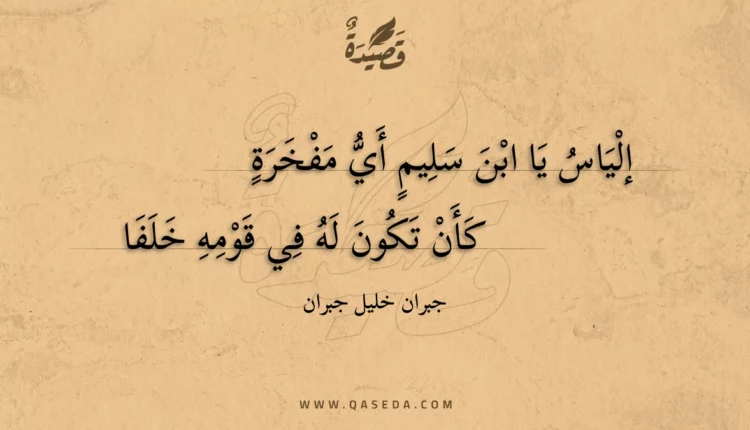 قَصِيدَةٌ
إلْيَاسُ يَا ابْنَ سَلِيمٍ أَيُّ مَفْخَرَةٍ
كَأَنْ تَكُونَ لَهُ فِي قَوْمِهِ خَلَفَا
جبران خليل جبران
WWW.QASEDA.COM